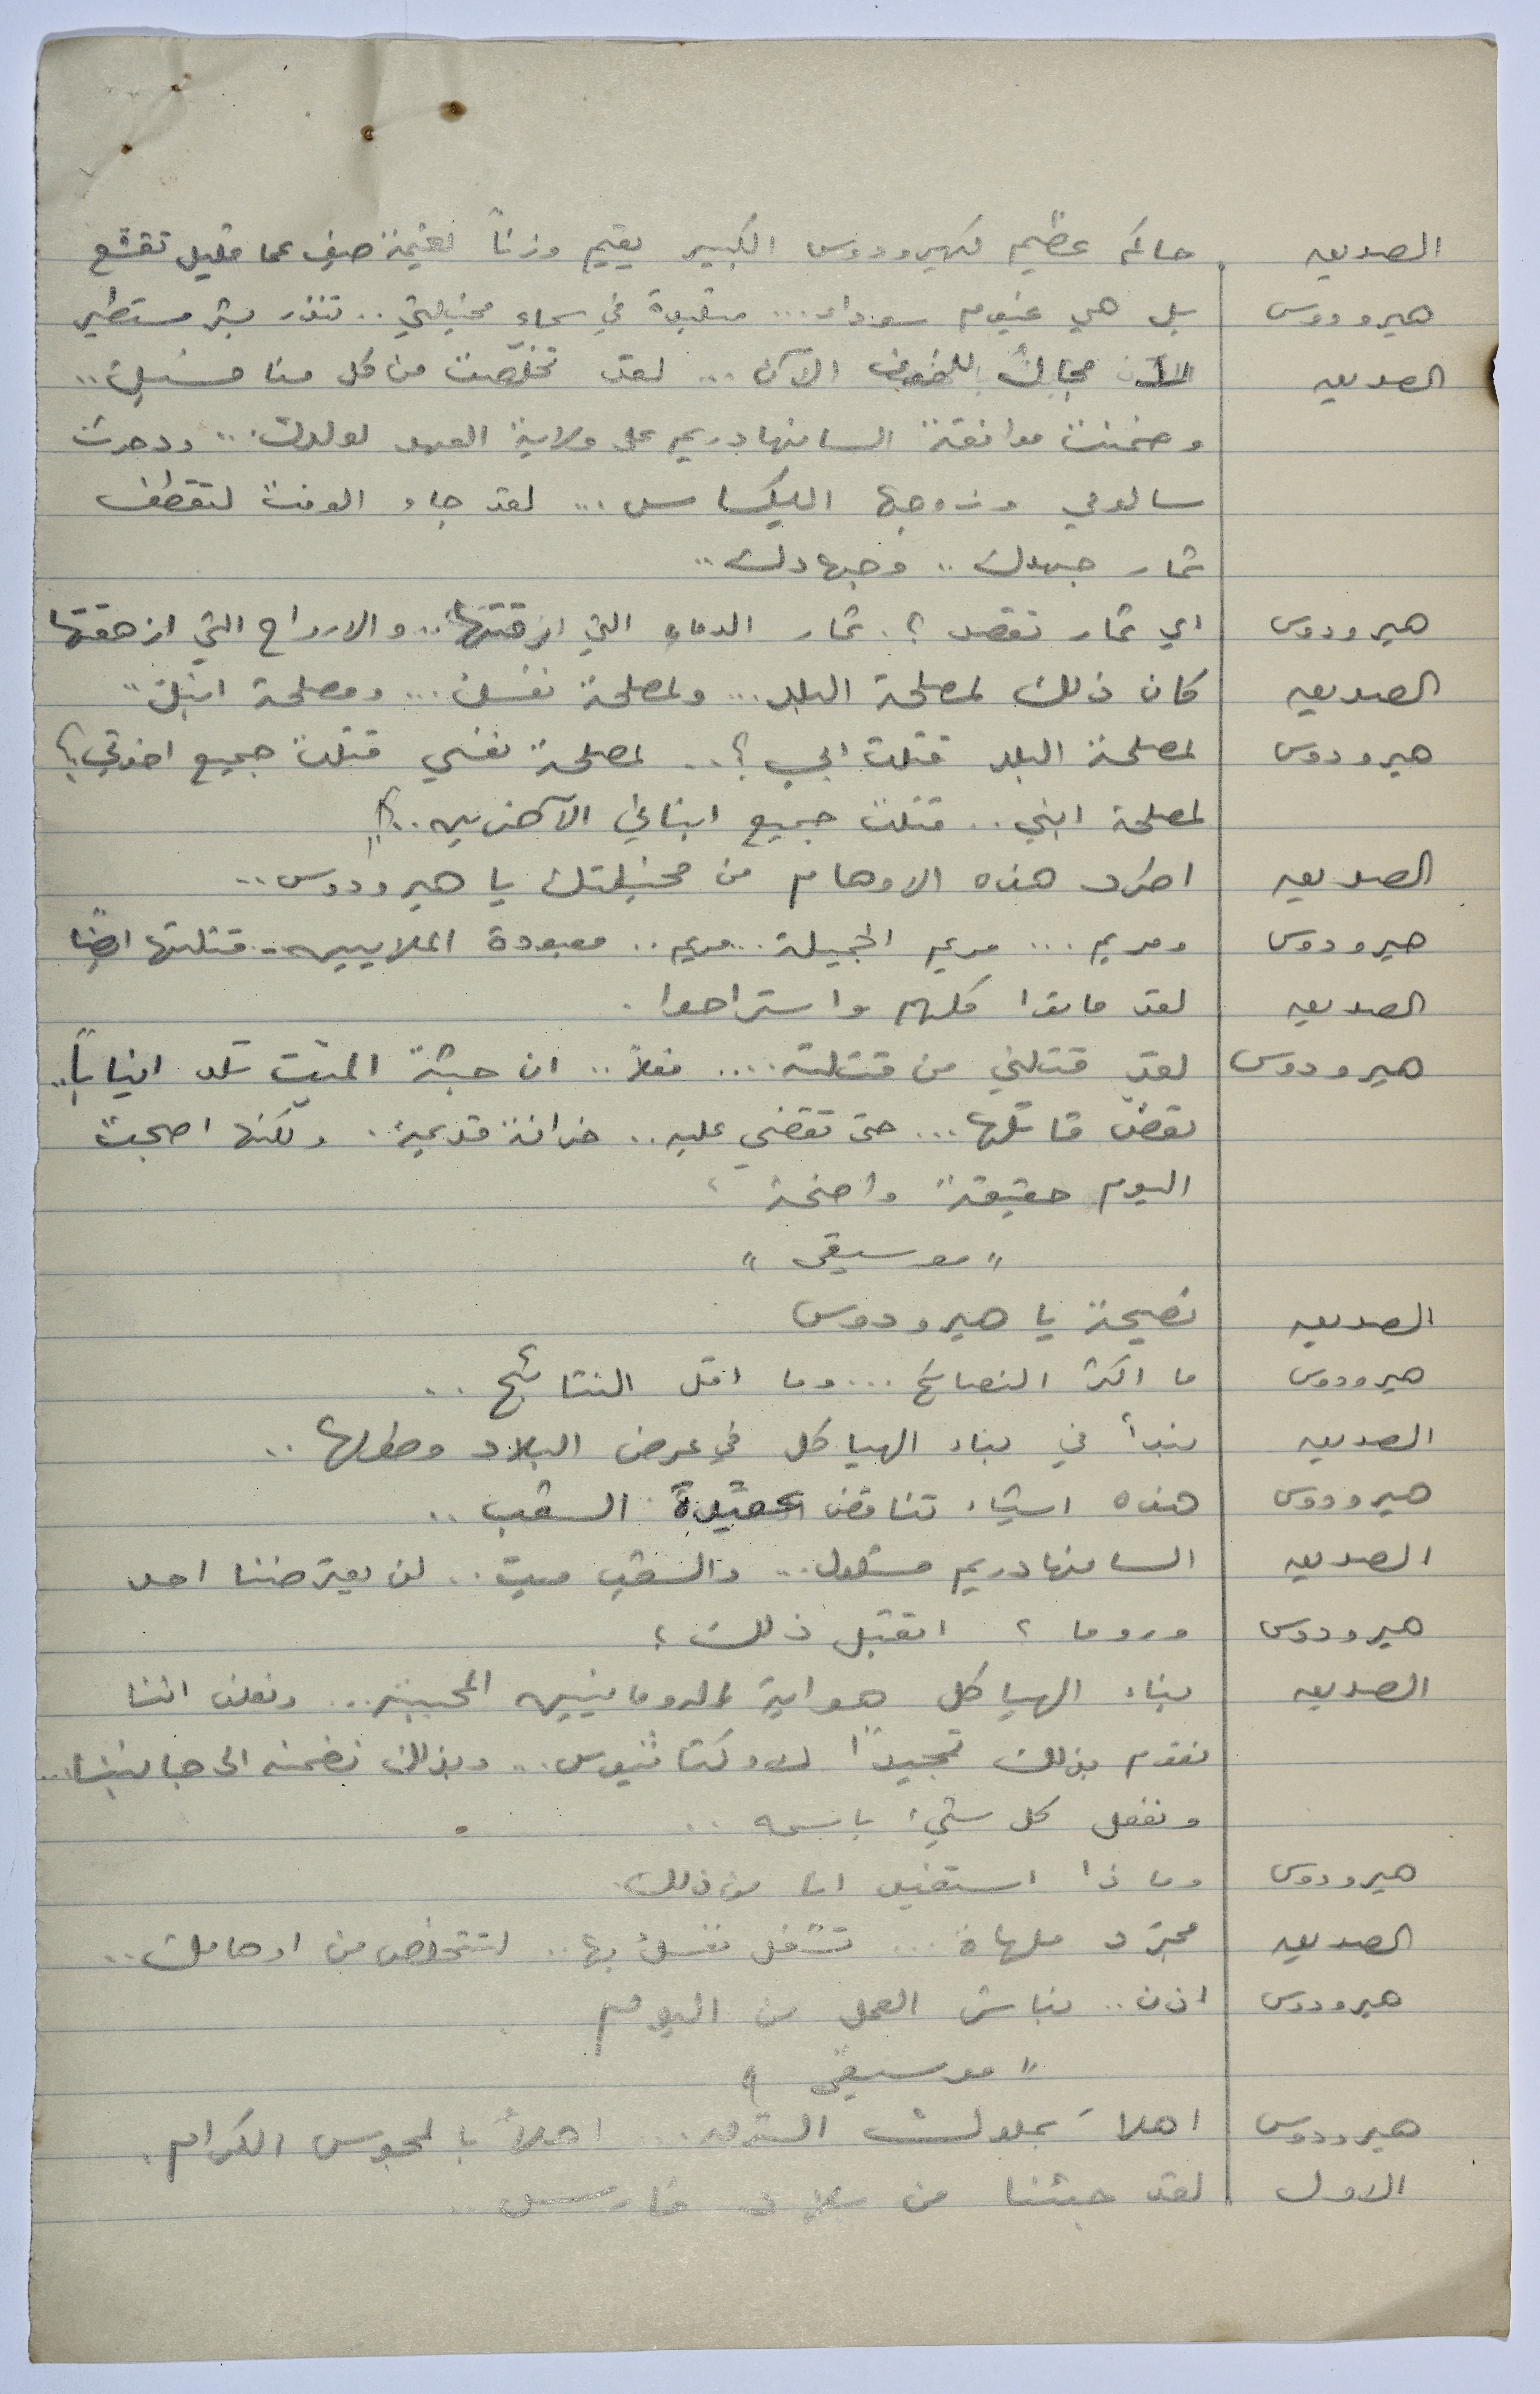 الصديق حاكم عظيم كهيرودوس الكبير يقيم وزناً لغيمة صيف عما قليل تقشع
هيرودوس بل هي غيوم سوداء... متلبدة في سماء مخيلتي.. تنذر بشر مستطير
الصديق لا مجال للخوف الآن... لقد تخلّصت من كل منافسيك..
وضمنت موافقة السانهادريم على ولاية العهد لولدك.. ودحرت
سالومي وزوجها اليكساس... لقد جاء الوقت لتقطف
ثمار جهدك.. وجهادك..
هيرودوس اي ثمار تقصد؟. ثمار الدماء التي ارقتها.. والارواح التي ازهقتها
الصديق كان ذلك لمصلحة البلد... ولمصلحة نفسك... ومصلحة ابنك..
هيرودوس لمصلحة البلد قتلت ابي؟.. لمصلحة نفسي قتلت جميع اخوتي؟
لمصلحة ابني.. قتلت جميع ابنائي الآخرين..؟!
الصديق اطرد هذه الاوهام من مخيلتك يا هيرودوس..
هيرودوس ومريم... مريم الجميلة.. مريم.. معبودة الملايين.. قتلتها ايضاً
الصديق لقد ماتوا كلهم واستراحوا.
هيرودوس لقد قتلني من قتلته.... فعلاً.. ان جثة الميّت تلد انياباً..
تعضّ قاتلها... حتى تقضي عليه.. خرافة قديمة. ولكنها اصبحت
اليوم حقيقة واضحة
"موسيقى"
الصديق نصيحة يا هيرودوس
هيرودوس ما اكثر النصائح... وما اقل النتائج..
الصديق نبدأ في بناء الهياكل في عرض البلاد وطولها..
هيرودوس هذه اشياء تناقض عقيدة الشعب..
الصديق السانهادريم مشلول... والشعب ميت.. لن يعترضنا احد
هيرودوس وروما؟ اتقبل ذلك؟
الصديق بناء الهياكل هواية الرومانيين المحببة... ونعلن اننا
نقوم بذلك تمجيداً لاوكتافيوس.. وبذلك نضمنه الى جانبنا...
ونفعل كل شيء باسمه..
هيرودوس وماذا استفيد انا من ذلك.
الصديق مجرّد ملهاة... تشغل نفسك بها.. لتتخلص من اوهامك..
هيرودوس اذن.. نباشر العمل من اليوم
"موسيقى"
هيرودوس اهلاً بملوك الشرق... اهلاً بالمجوس الكرام.
الاول لقد جئنا من بلاد فارس..